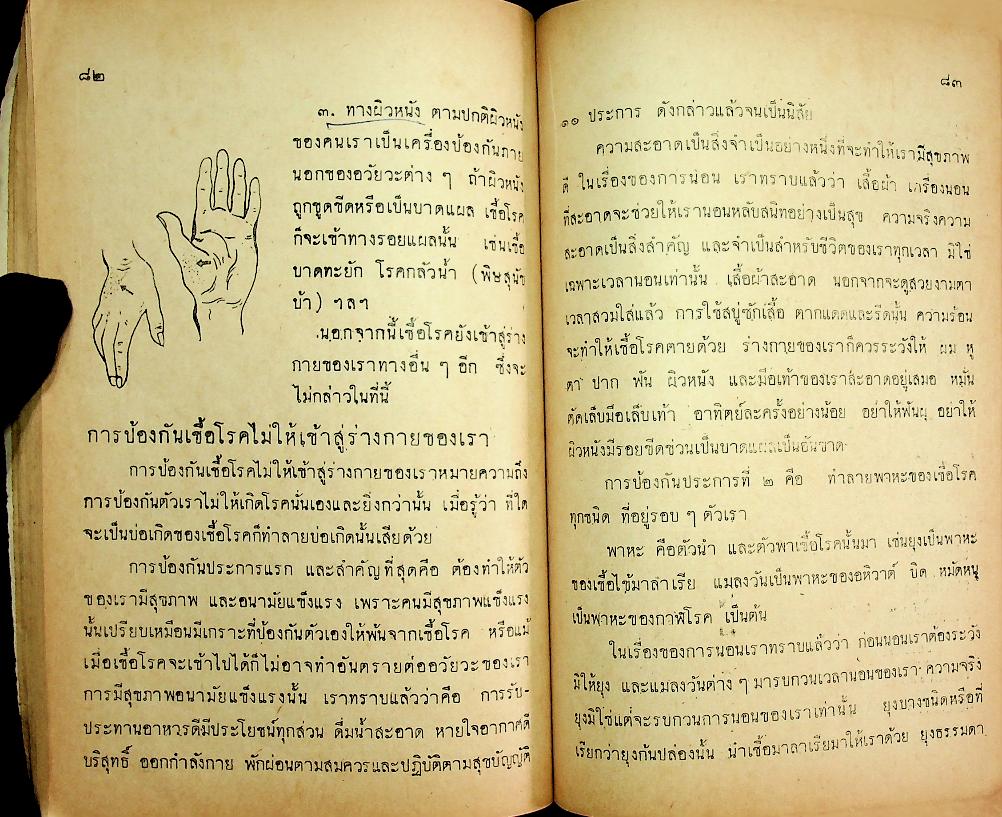 ๘๒
๓. ทางผิวหนัง ตามปกติผิวหนัง
ของคนเราเป็นเครื่องป้องกันภาย
นอกของอวัยวะต่าง ๆ ถ้าผิวหนัง
ถูกขูดขีดหรือเป็นบาดแผล เชื้อโรค
ก็จะเข้าทางรอยแผลนั้น เช่นเชื้อ
บาดทะยัก โรคกลัวน้ำ (พิษสุนัข
บ้า) ฯลฯ
นอกจากนี้เชื้อโรคยังเข้าสู่ร่าง
กายของเราทางอื่น ๆ อีก ซึ่งจะ
ไม่กล่าวในที่นี้
การป้องกันเชื้อโรคไม่ให้เข้าสู่ร่างกายของเรา
การป้องกันเชื้อโรคไม่ให้เข้าสู่ร่างกายของเราหมายความถึง
การป้องกันตัวเราไม่ให้เกิดโรคนั่นเองและยิ่งกว่านั้น เมื่อรู้ว่า ที่ใด
จะเป็นบ่อเกิดของเชื้อโรคก็ทำลายบ่อเกิดนั้นเสียด้วย
การป้องกันประการแรก และสำคัญที่สุดคือ ต้องทำให้ตัว
ของเรามีสุขภาพ และอนามัยแข็งแรง เพราะคนมีสุขภาพแข็งแรง
นั้นเปรียบเหมือนมีเกราะที่ป้องกันตัวเองให้พ้นจากเชื้อโรค หรือแม้
เมื่อเชื้อโรคจะเข้าไปได้ก็ไม่อาจทำอันตรายต่ออวัยวะของเรา
การมีสุขภาพอนามัยแข็งแรงนั้น เราทราบแล้วว่าคือ การรับ-
ประทานอาหารดีมีประโยชน์ทุกส่วน ดื่มน้ำสะอาด หายใจอากาศดี
บริสุทธิ์ ออกกำลังกาย พักผ่อนตามสมควรและปฏิบัติตามสุขบัญญัติ
๘๓
๑๑ ประการ ดังกล่าวแล้วจนเป็นนิสัย
ความสะอาดเป็นสิ่งจำเป็นอย่างหนึ่งที่จะทำให้เรามีสุขภาพ
ดี ในเรื่องของการนอน เราทราบแล้วว่า เสื้อผ้า เครื่องนอน
ที่สะอาดจะช่วยให้เรานอนหลับสนิทอย่างเป็นสุข ความจริงความ
สะอาดเป็นสิ่งสำคัญ และจำเป็นสำหรับชีวิตของเราทุกเวลา มิใช่
เฉพาะเวลานอนเท่านั้น เสื้อผ้าสะอาด นอกจากจะดูสวยงามตา
เวลาสวมใส่แล้ว การใช้สบู่ซักเสื้อ ตากแดดและรีดนั้น ความร้อน
จะทำให้เชื้อโรคตายด้วย ร่างกายของเราก็ควรระวังให้ ผม หู
ตา ปาก ฟัน ผิวหนัง และมือเท้าของเราสะอาดอยู่เสมอ หมั่น
ตัดเล็บมือเล็บเท้า อาทิตย์ละครั้งอย่างน้อย อย่าให้ฟันผุ อย่าให้
ผิวหนังมีรอยขีดข่วนเป็นบาดแผลเป็นอันขาด
การป้องกันประการที่ ๒ คือ ทำลายพาหะของเชื้อโรค
ทุกชนิด ที่อยู่รอบ ๆ ตัวเรา
พาหะ คือตัวนำ และตัวพาเชื้อโรคนั้นมา เช่นยุงเป็นพาหะ
ของเชื้อไข้มาลาเรีย แมลงวันเป็นพาหะของอหิวาต์ บิด หมัดหนู
เป็นพาหะของกาฬโรค เป็นต้น
ในเรื่องของการนอนเราทราบแล้วว่า ก่อนนอนเราต้องระวัง
มิให้ยุง และแมลงวันต่าง ๆ มารบกวนเวลานอนของเรา ความจริง
ยุงมิใช่แต่จะรบกวนการนอนของเราเท่านั้น ยุงบางชนิดหรือที่
เรียกว่ายุงก้นปล่องนั้น นำเชื้อมาลาเรียมาให้เราด้วย ยุงธรรมดา